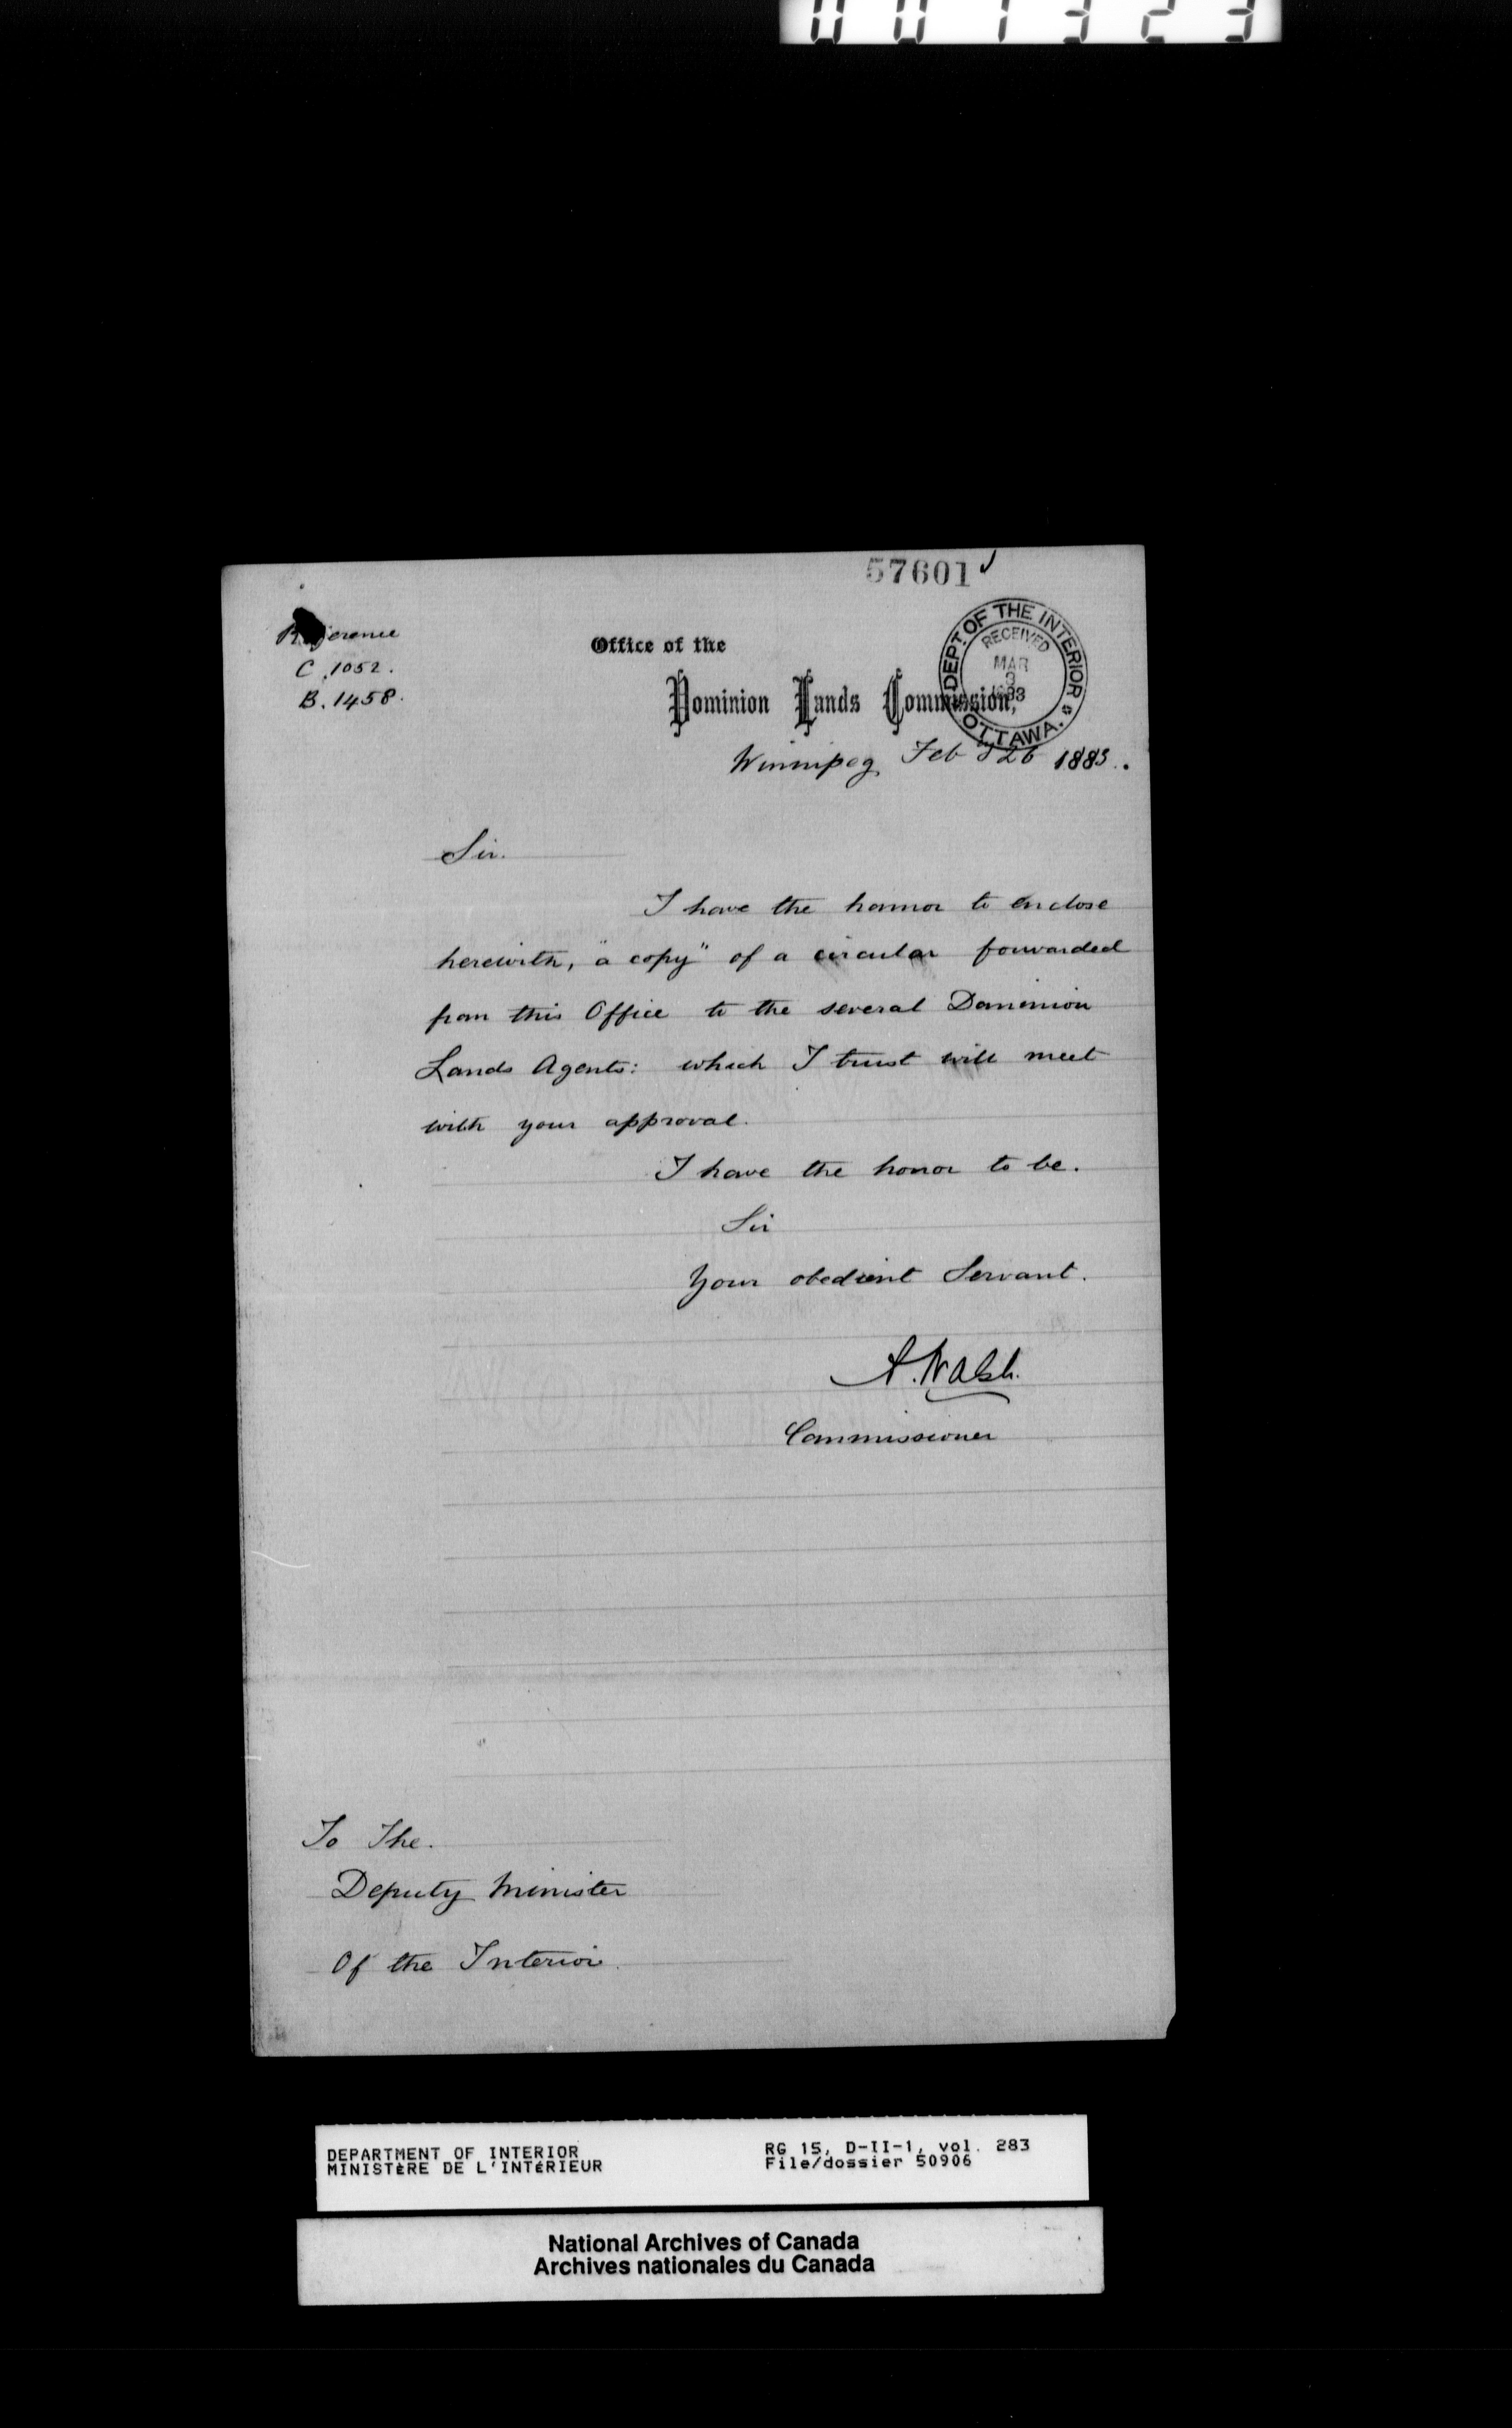 001323
57601
Reference
C. 1052.
B. 1458.
Office of the
Dominion Lands Commission,
DEPT. OF THE INTERIOR
RECEIVED
MAR
3
1883
OTTAWA.
Winnipeg, Feb 26 1883.
Sir.
I have the honnor to enclose
herewith, "a copy" of a circular forwarded
from this Office to the several Dominion
Lands Agents: which I trust will meet
with your approval.
I have the honor to be.
Sir
Your obedient Servant.
A. Walsh.
Commissioner
To The.
Deputy Minister
Of the Interior.
DEPARTMENT OF INTERIOR
MINISTÈRE DE L'INTÉRIEUR
RG 15, D-II-1, vol. 283
File/dossier 50906
National Archives of Canada
Archives nationales du Canada